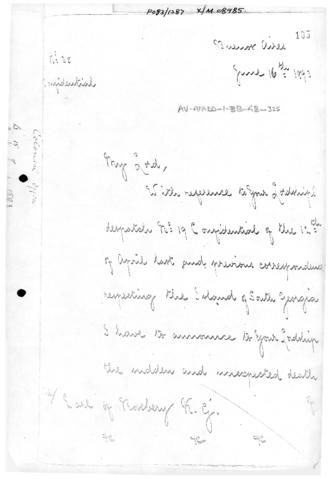 P082/1287 X/M 08485
103
Buenos Aires
June 16th 1893
No 38
Confidential
Colonial Office
My Lord,
With reference to Your Lordship's
despatch No 19 Confidential of the 12th
of April last and previous correspondence
respecting the Island of South Georgia
I have to announce to Your Lordship
the sudden and unexpected death
of
Earl of Rosebery K. G.
&c &c &c